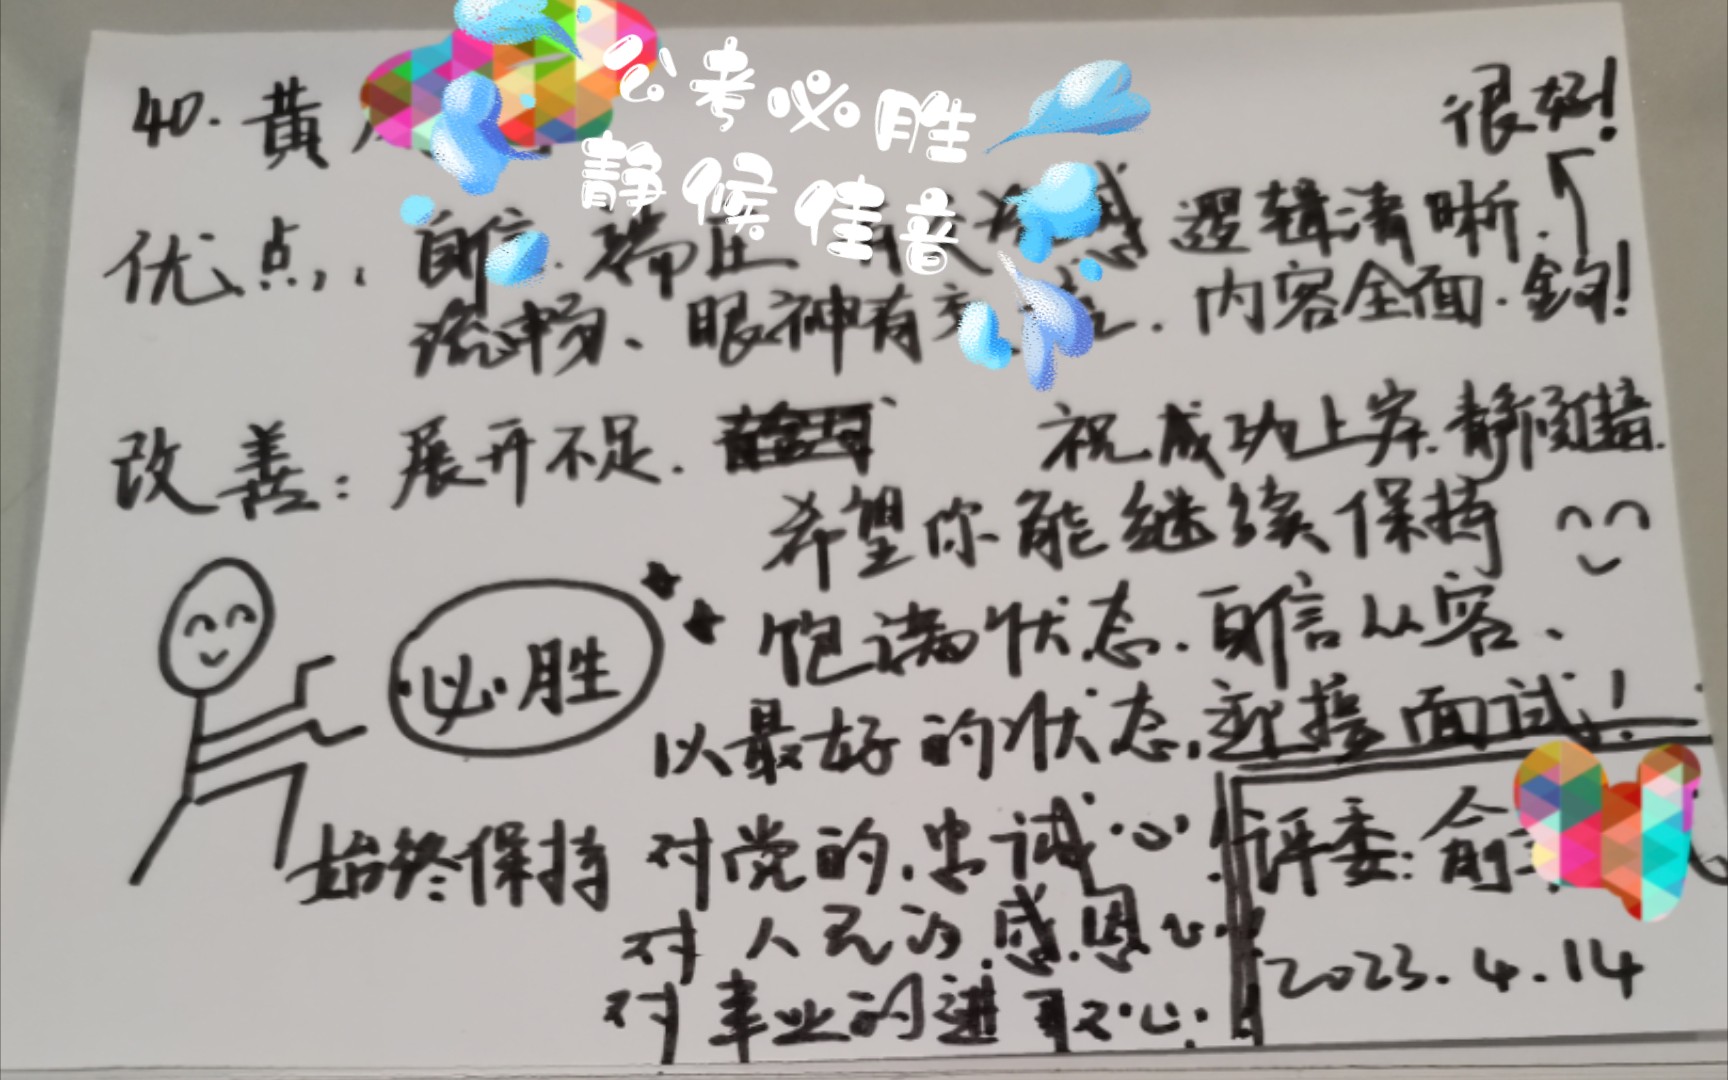 公考必胜
静候佳音
40. 黄
很好!
优点: 自信. 端庄 感 逻辑清晰.
流畅、眼神有交 . 内容全面. 钧!
改善: 展开不足.
祝成功上岸. 静候佳音.
希望你能继续保持
饱满状态. 自信从容、
以最好的状态, 迎接面试!
必胜
始终保持 对党的忠诚心
对人民的感恩心
对事业的进取心
评委: 俞
2023.4.14